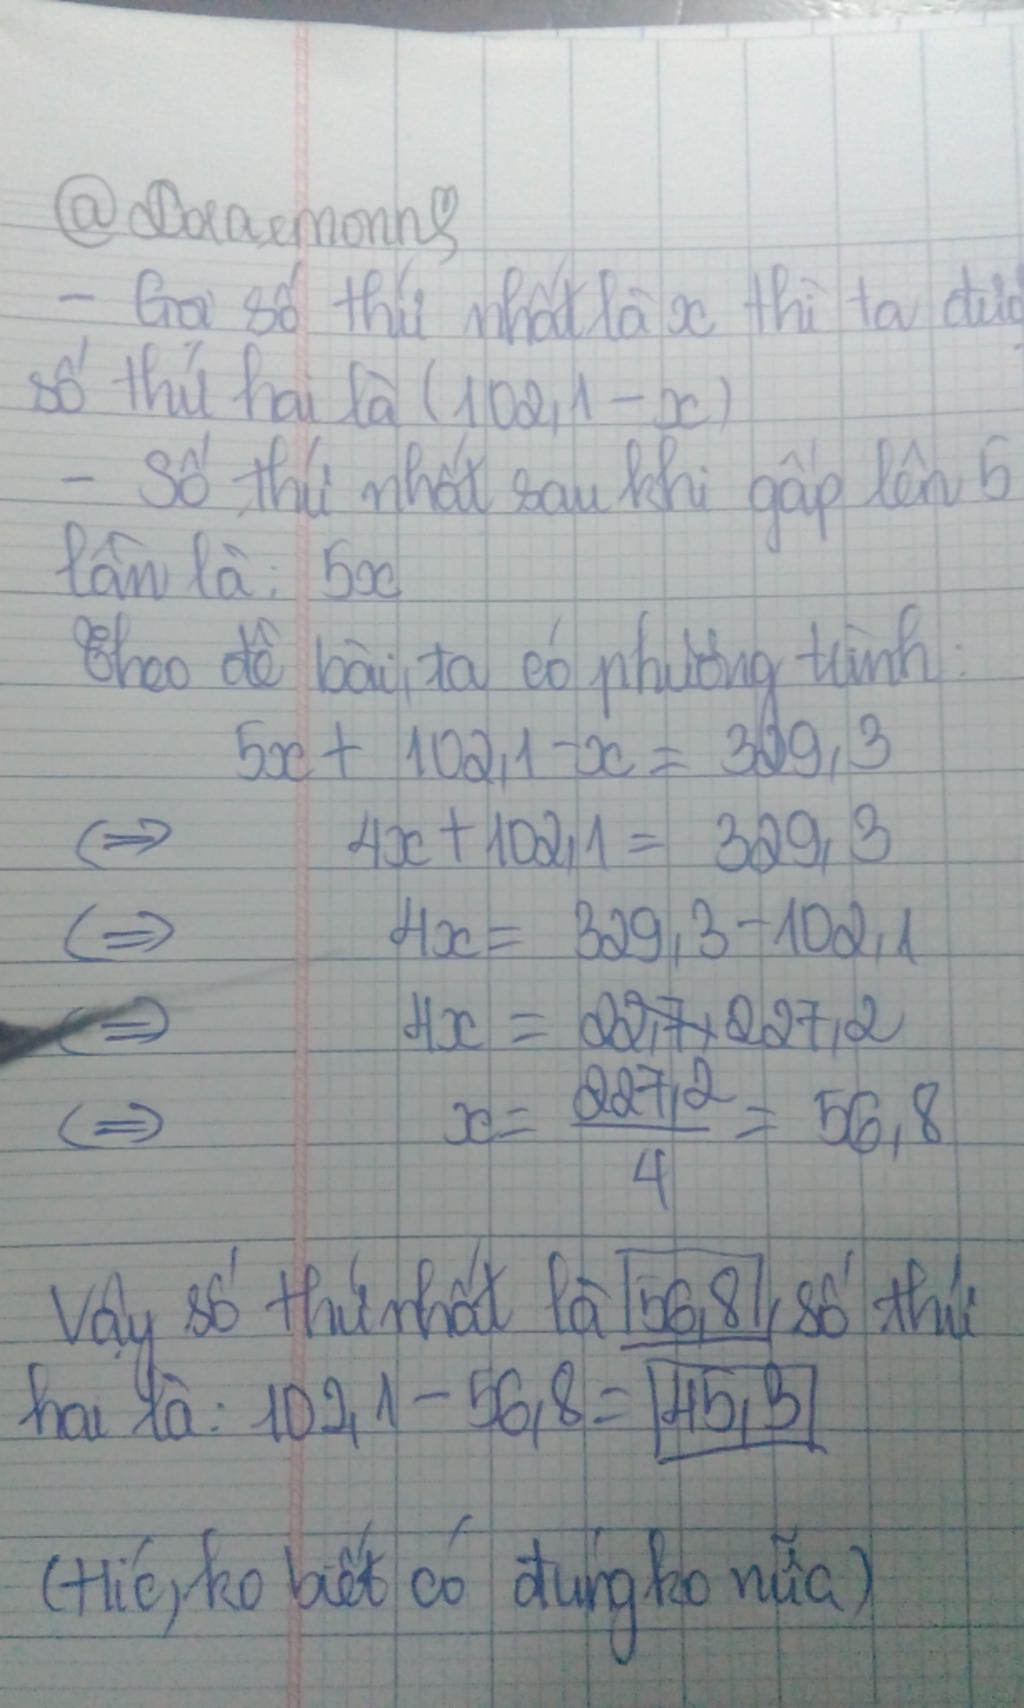 @Doraemonns
- Gọi số thứ nhất là x thì ta được
số thứ hai là (102,1 - x)
- Số thứ nhất sau khi gấp lên 5
lần là: 5x
Theo đề bài, ta có phương trình:
5x + 102,1 - x = 329,3
(=>) 4x + 102,1 = 329,3
(=>) 4x = 329,3 - 102,1
(=>) 4x = 227,2
(=>) x = 227,2/4 = 56,8
Vậy số thứ nhất là 56,8, số thứ
hai là: 102,1 - 56,8 = 45,3
(Híc, ko biết có đúng ko nữa)